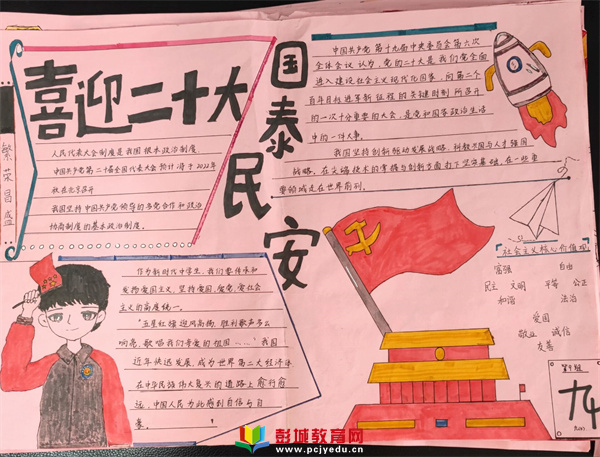 喜迎二十大
国泰民安
繁荣昌盛
人民代表大会制度是我国根本政治制度.
中国共产党第二十届全国代表大会预计将于2022年
秋在北京召开
我国坚持中国共产党领导的多党合作和政治
协商制度的基本政治制度.
中国共产党第十九届中央委员会第六次
全体会议认为,党的二十大是我们党全面
进入建设社会主义现代化国家,向第二个
百年目标进军新征程的关键时刻所召开
的一次十分重要的大会,是党和国家政治生活
中的一件大事.
我国坚持创新驱动发展战略,科教兴国与人才强国
战略,在尖端技术的掌握与创新方面打下坚实基础,在一些重
要领域走在世界前列.
社会主义核心价值观
富强 自由
民主 文明 平等 公正
和谐 法治
爱国
敬业 诚信
友善
作为新时代中学生,我们要传承和
发扬爱国主义,坚持爱国,爱党,爱社会
主义的高度统一.
"五星红旗迎风高扬,胜利歌声多么
响亮,歌唱我们亲爱的祖国……"我国
近年快速发展,成为世界第二大经济体
在中华民族伟大复兴的道路上愈行愈
远,中国人民为此感到自信与自
豪. !
九
彭城教育网
www.pcjyedu.cn